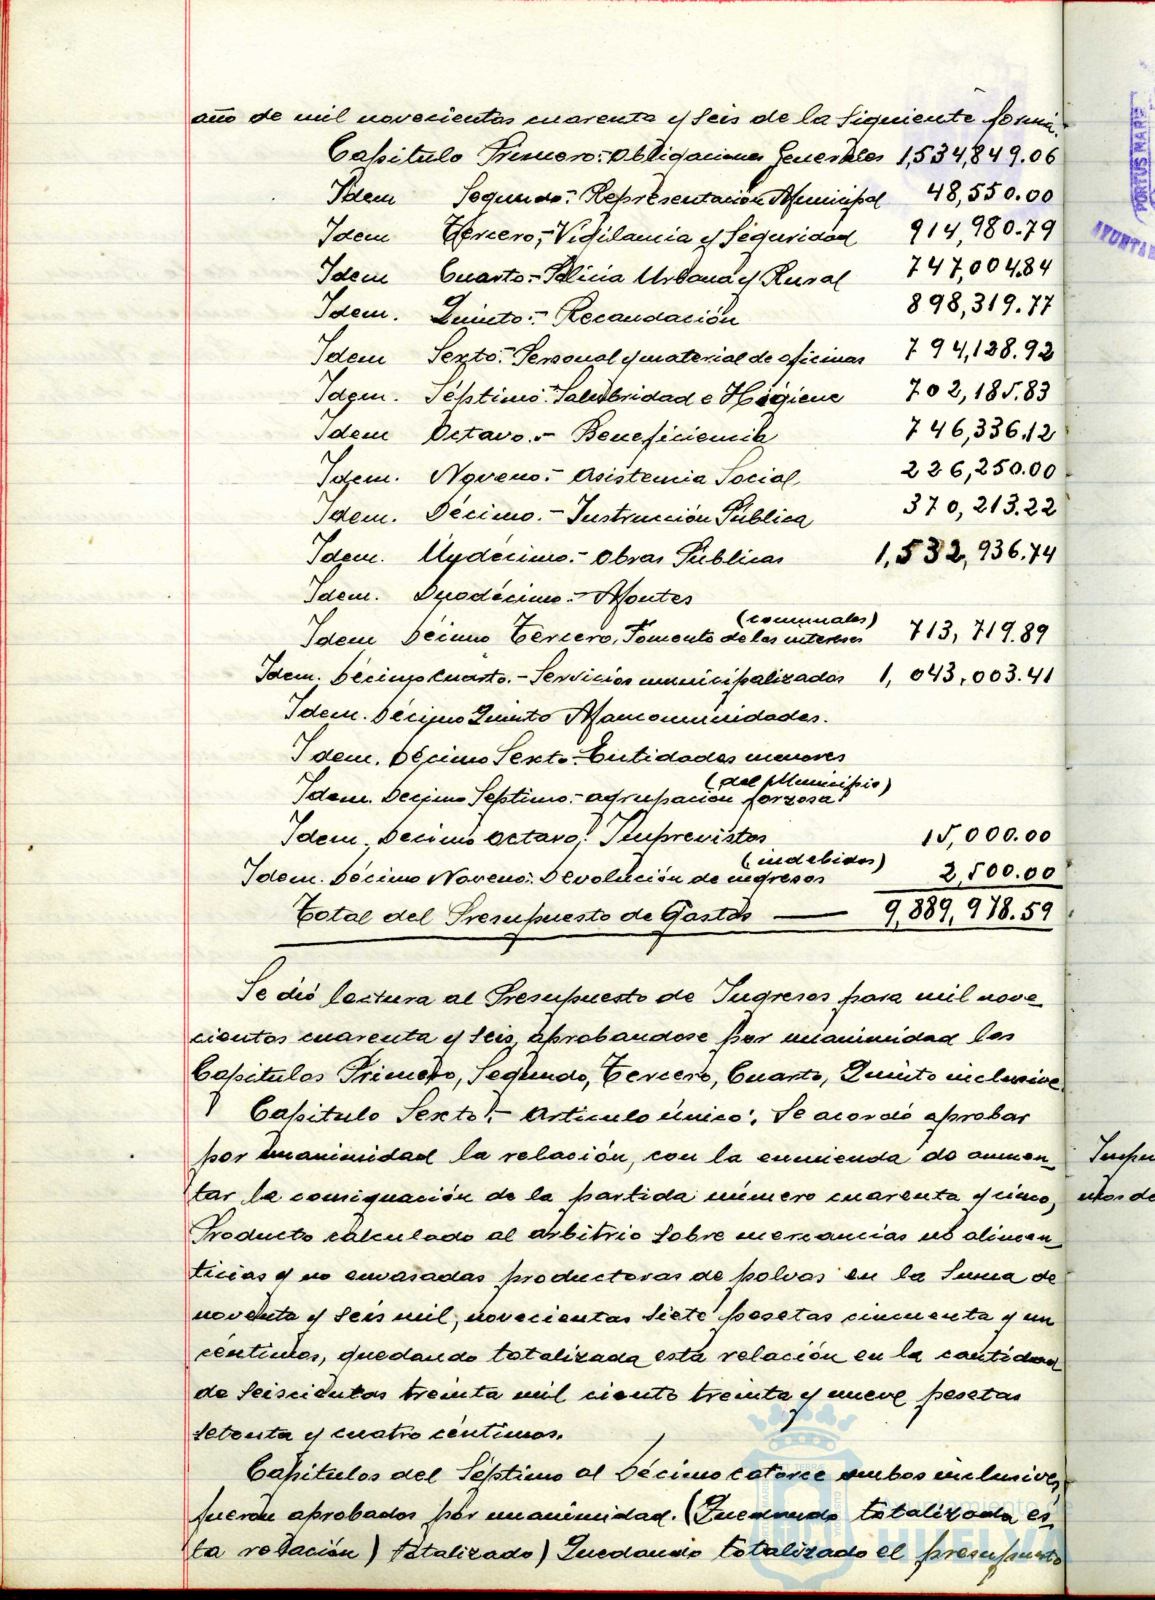 año de mil novecientos cuarenta y seis de la siguiente forma.
Capitulo Primero.- Obligaciones Generales 1,534,849.06
Idem Segundo.- Representación Municipal 48,550.00
Idem Tercero,- Vigilancia y Seguridad 914,980.79
Idem Cuarto.- Policia Urbana y Rural 747,004.84
Idem. Quinto.- Recaudación 898,319.77
Idem Sexto.- Personal y material de oficinas 794,128.92
Idem. Séptimo.- Salubridad e Higiene 702,185.83
Idem Octavo.- Beneficiencia 746,336.12
Idem. Noveno.- Asistencia Social 226,250.00
Idem. Décimo.- Instrucción Pública 370,213.22
Idem. Undécimo.- Obras Públicas 1,532,936.74
Idem. Duodécimo.- Montes
(comunales)
Idem Décimo Tercero, Fomento de los intereses 713,719.89
Idem. Décimo Cuarto.- Servicios municipalizados 1,043,003.41
Idem. Décimo Quinto Mancomunidades.
Idem. Décimo Sexto.- Entidades menores
(del Municipio)
Idem. Decimo Septimo.- agrupación forzosa
Idem. Decimo Octavo. Imprevistos 15,000.00
(indebidos)
Idem. Décimo Noveno. Devolución de ingresos 2,500.00
Total del Presupuesto de Gastos 9,889,978.59
Se dió lectura al Presupuesto de Ingresos para mil nove-
cientos cuarenta y seis, aprobandose por unanimidad los
Capitulos Primero, Segundo, Tercero, Cuarto, Quinto inclusive
Capitulo Sexto.- Articulo único. Se acordó aprobar
por unanimidad la relación, con la enmienda de aumen-
tar la consignación de la partida número cuarenta y cinco,
Producto calculado al arbitrio sobre mercancias no alimen-
ticias y no envasadas productoras de polvos en la suma de
noventa y seis mil, novecientas siete pesetas cincuenta y un
céntimos, quedando totalizada esta relación en la cantidad
de seiscientas treinta mil ciento treinta y nueve pesetas
setenta y cuatro céntimos.
Capitulos del Séptimo al Décimo catorce ambos inclusives,
fueron aprobados por unanimidad. (Quedando totalizada es-
ta relación) totalizado) Quedando totalizado el presupuesto
PORTUS MARIS
AYUNTAM
Ayuntamiento de
HUELVA